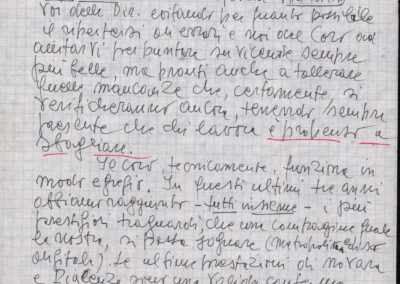 voi della Dir. evitando per quanto possibile
il ripetersi di errori e noi del Coro ad
aiutarvi per puntare su vicende sempre
più belle, ma pronti anche a tollerare
quelle mancanze che, certamente, si
verificheranno ancora, tenendo sempre
presente che chi lavora è propenso a
sbagliare.
Il Coro, tecnicamente, funziona in
modo egregio. In questi ultimi tre anni
abbiamo raggiunto - tutti insieme - i più
prestigiosi traguardi, che una compagine quale
la nostra, si possa sognare (
). Le ultime prestazioni di Novara
e Piacenza sono una